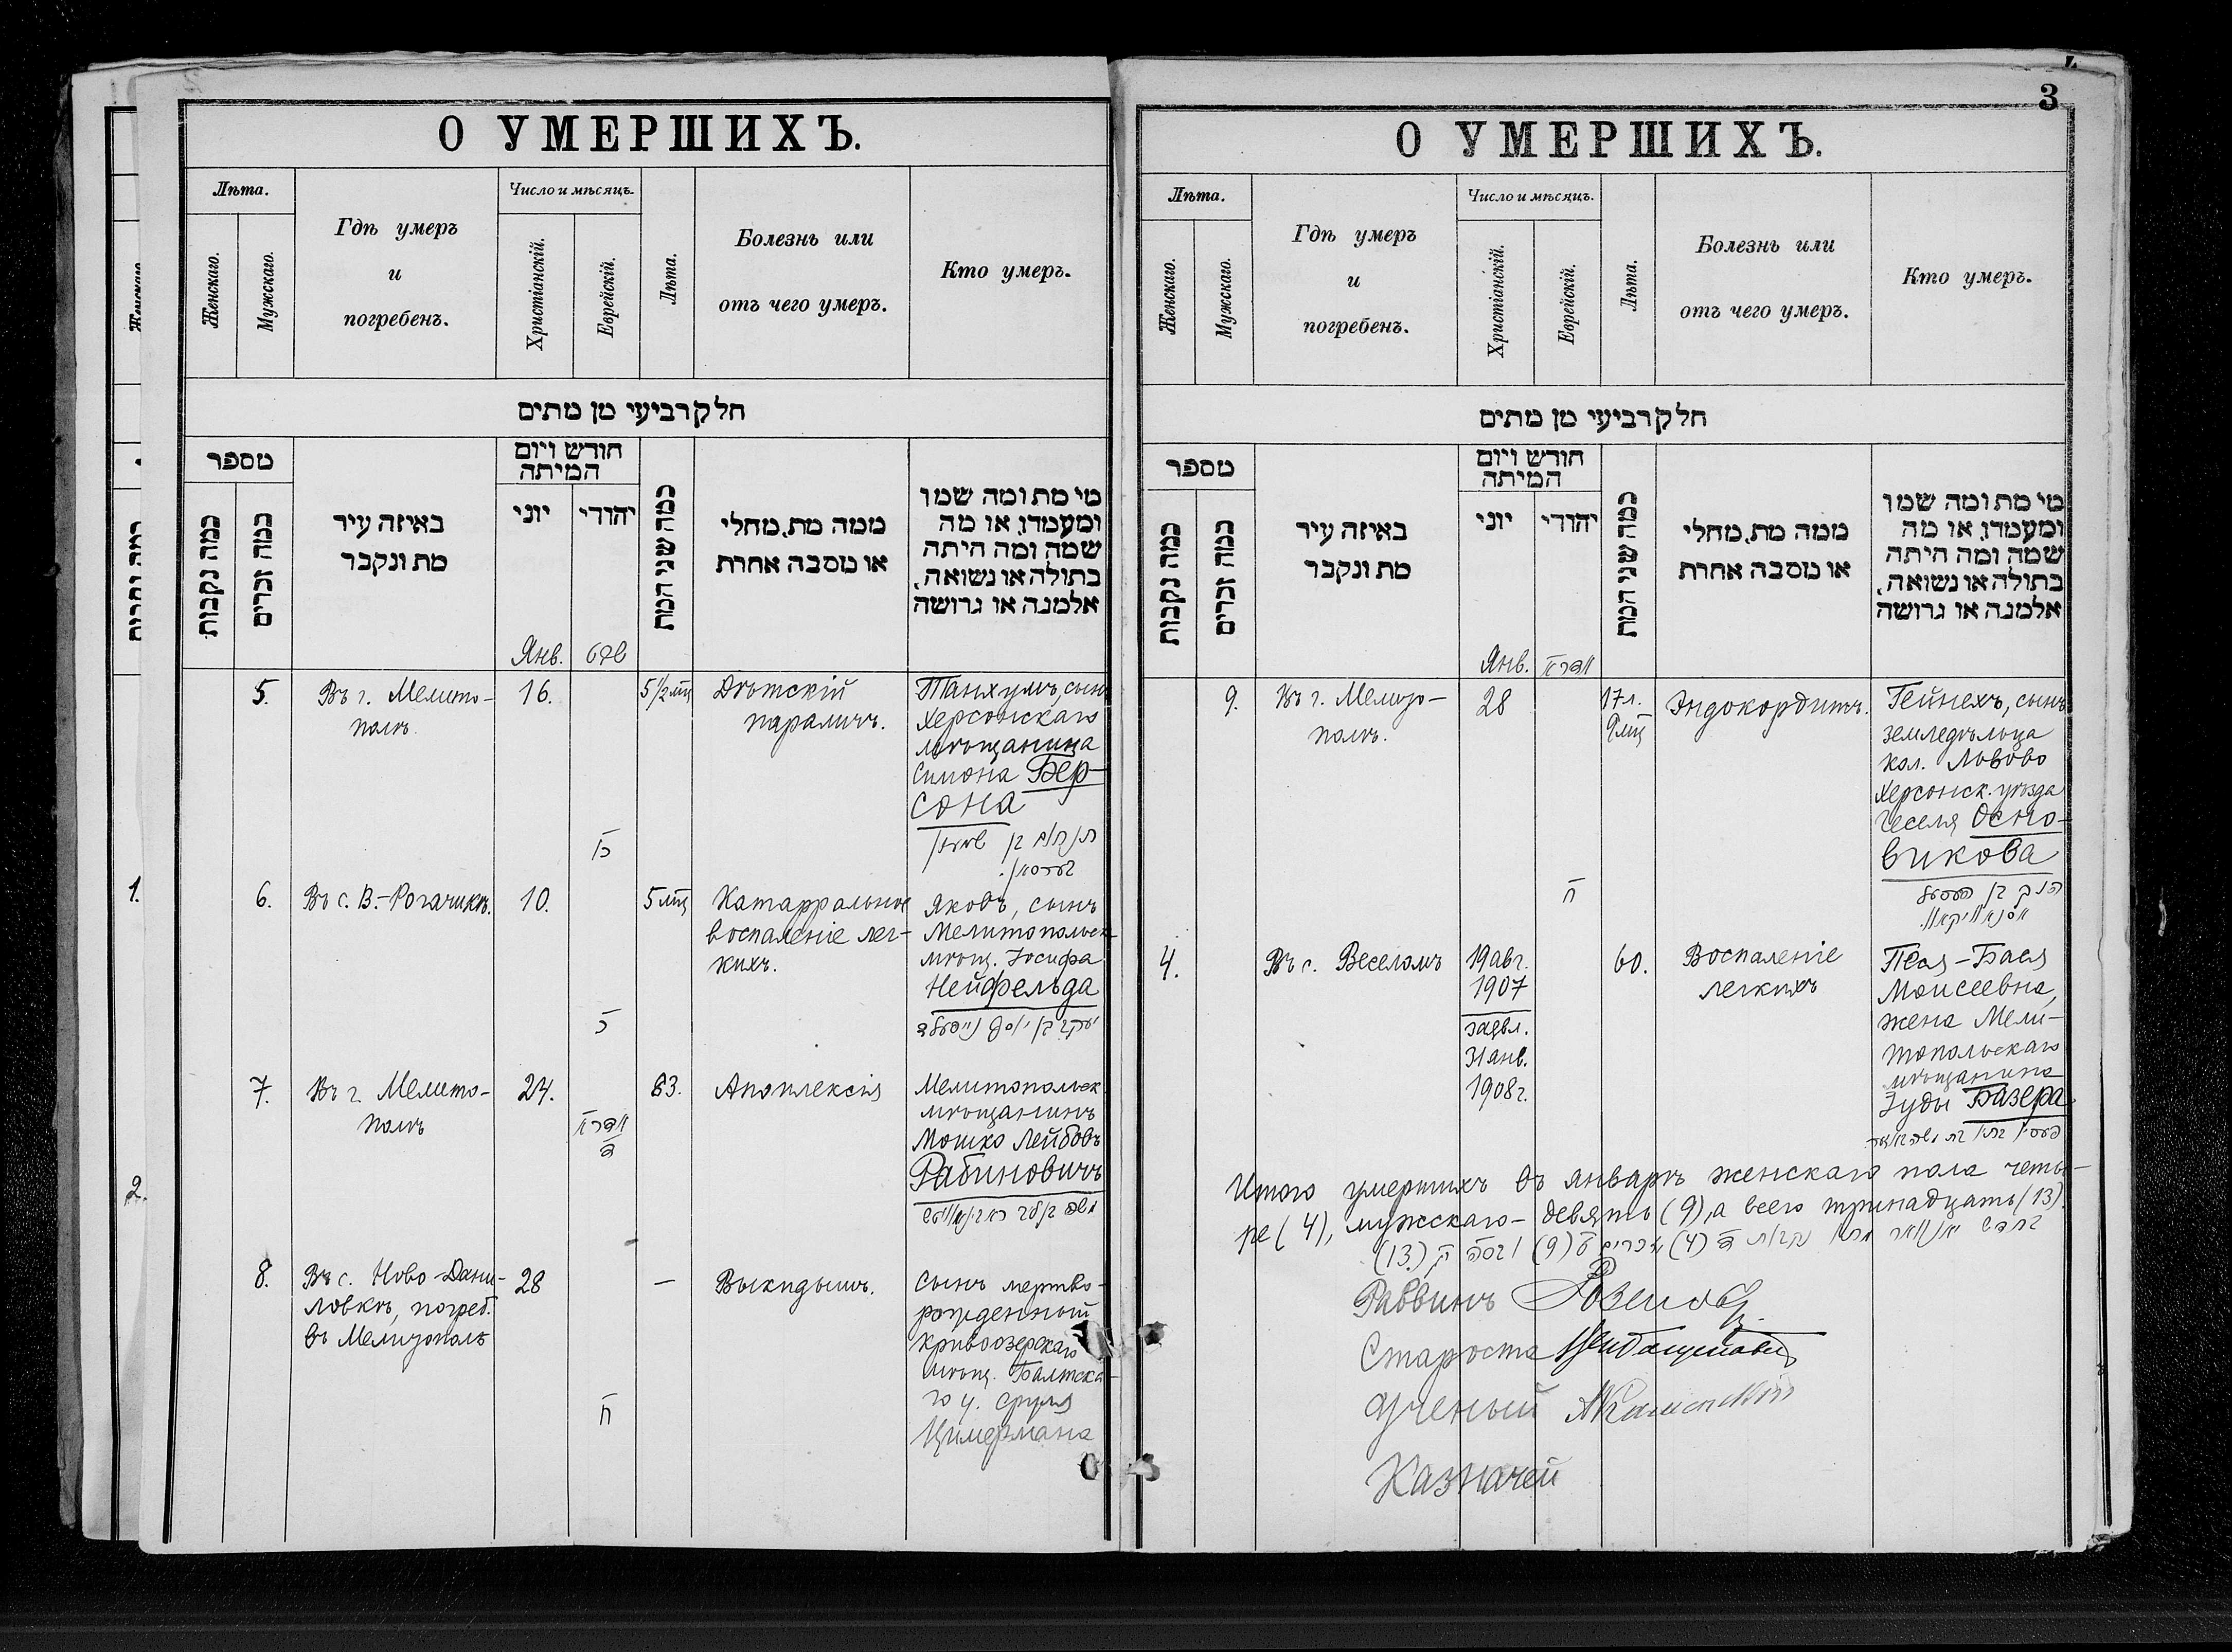 О УМЕРШИХЪ.
Лѣта.
Женскаго.
Мужскаго.
Гдѣ умеръ
и
погребенъ.
Число и мѣсяцъ.
Христіанскій.
Еврейскій.
Лѣта.
Болезнь или
отъ чего умеръ.
Кто умеръ.
חלק רביעי מן מתים
מספר
כמה נקבות
כמה זכרים
באיזה עיר
מת ונקבר
חודש ויום
המיתה
יוני
יהודי
כמה שני המת
ממה מת, מחלי
או מסבה אחרת
מי מת ומה שמו
ומעמדו, או מה
שמה ומה היתה
בתולה או נשואה,
אלמנה או גרושה
Янв.
שבט
5.
Въ г. Мелито-
полѣ
16.
5 1/2 мѣц
Дѣтскій
параличъ.
Танхумъ, сынъ
Херсонскаго
мѣщанина
Симона Бер-
сона
6.
Въ с. В.-Рогачикѣ.
10.
5 мѣц
Катарральное
воспаленіе лег-
кихъ.
Яковъ, сынъ
Мелитопольск
мѣщ. Іосифа
Нейфельда
יעקב בן יוסף נייפעלד
7.
Въ г. Мелито-
полѣ
24.
83.
Апоплексія
Мелитопольск
мѣщанинъ
Мошко Лейбовъ
Рабиновичъ
8.
Въ с. Ново-Дани-
ловкѣ, погреб.
въ Мелитополѣ
28
—
Выкидышъ.
Сынъ мертво-
рожденный
Кривоозерскаго
мѣщ. Балтска-
го у. Сруля
Цимермана
1.
2.
3
О УМЕРШИХЪ.
Лѣта.
Женскаго.
Мужскаго.
Гдѣ умеръ
и
погребенъ.
Число и мѣсяцъ.
Христіанскій.
Еврейскій.
Лѣта.
Болезнь или
отъ чего умеръ.
Кто умеръ.
חלק רביעי מן מתים
מספר
כמה נקבות
כמה זכרים
באיזה עיר
מת ונקבר
חודש ויום
המיתה
יוני
יהודי
כמה שני המת
ממה מת, מחלי
או מסבה אחרת
מי מת ומה שמו
ומעמדו, או מה
שמה ומה היתה
בתולה או נשואה,
אלמנה או גרושה
Янв.
9.
Въ г. Мелито-
полѣ.
28
17 л.
9 мѣц
Эндокордитъ.
Гейнехъ, сынъ
земледѣльца
кол. Львово
Херсонск. уѣзда
Геселя Осно-
викова
4.
Въ с. Веселомъ
19 авг.
1907
заявл.
31 янв.
1908 г.
60.
Воспаленіе
легкихъ
Песя-Бася
Моисеевна,
жена Мели-
топольскаго
мѣщанина
Іуды Базера
Итого умершихъ въ январѣ женскаго пола четы-
ре (4), мужскаго - девять (9), а всего тринадцать (13).
Раввинъ
Староста
Ученый АКаменскій
Казначей